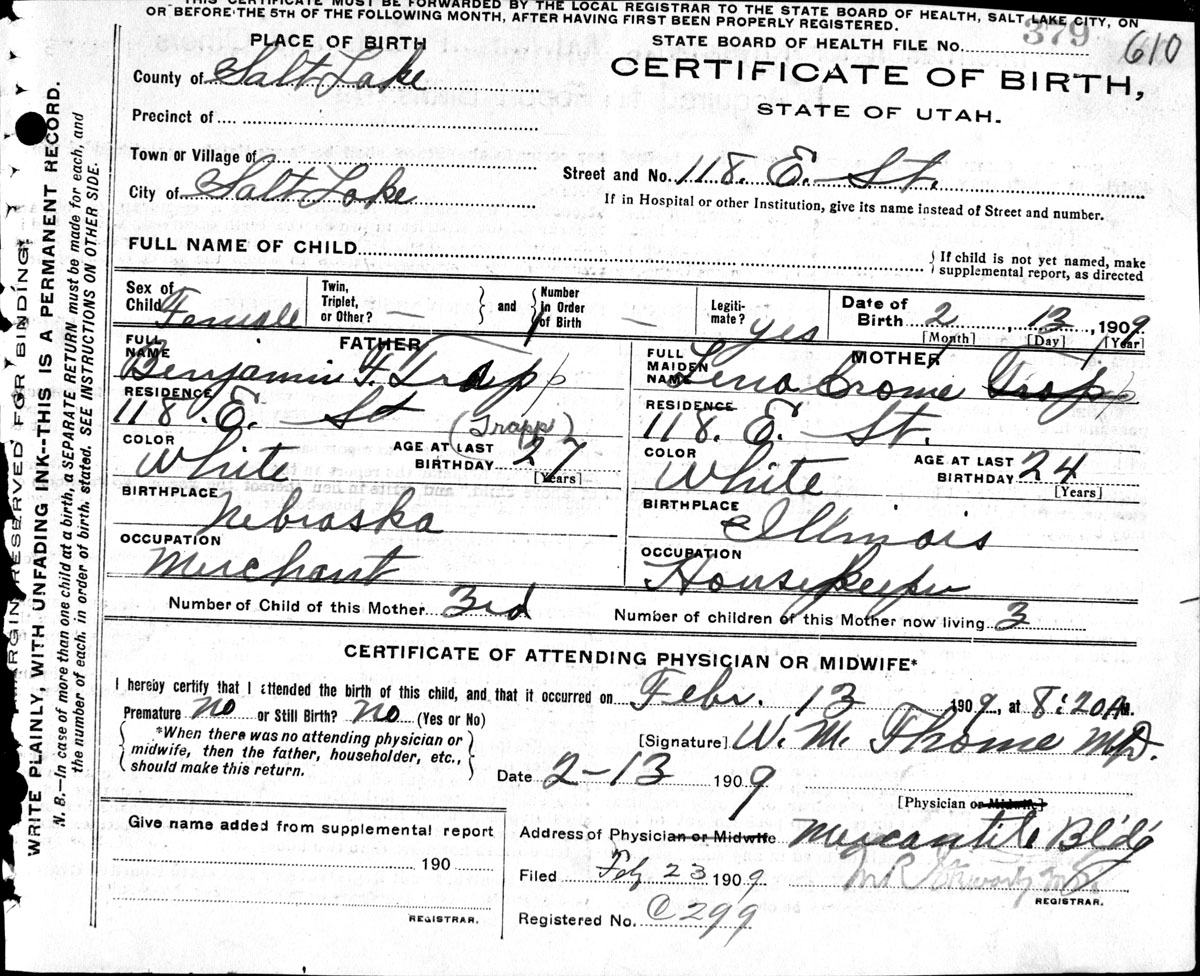 THIS CERTIFICATE MUST BE FORWARDED BY THE LOCAL REGISTRAR TO THE STATE BOARD OF HEALTH, SALT LAKE CITY, ON
OR BEFORE THE 5TH OF THE FOLLOWING MONTH, AFTER HAVING FIRST BEEN PROPERLY REGISTERED.
PLACE OF BIRTH
STATE BOARD OF HEALTH FILE No. 379 610
County of Salt Lake
CERTIFICATE OF BIRTH,
STATE OF UTAH.
Precinct of
Town or Village of
Street and No. 118. E. St.
City of Salt Lake
If in Hospital or other Institution, give its name instead of Street and number.
FULL NAME OF CHILD
If child is not yet named, make
supplemental report, as directed
Sex of Child Female
Twin, Triplet, or Other? —
and
Number in Order of Birth —
Legitimate? yes
Date of Birth 2, 13, 1909
[Month] [Day] [Year]
FATHER
FULL NAME Benjamin F. Trapp
RESIDENCE 118. E. St
(Trapp)
COLOR White
AGE AT LAST BIRTHDAY 27
[Years]
BIRTHPLACE Nebraska
OCCUPATION Merchant
MOTHER
FULL MAIDEN NAME Lena Crome Trapp
RESIDENCE 118. E. St.
COLOR White
AGE AT LAST BIRTHDAY 24
[Years]
BIRTHPLACE Illinois
OCCUPATION Housekeeper
Number of Child of this Mother 3rd
Number of children of this Mother now living 3
CERTIFICATE OF ATTENDING PHYSICIAN OR MIDWIFE*
I hereby certify that I attended the birth of this child, and that it occurred on Febr. 13 1909, at 8:20 A M.
Premature No or Still Birth? No (Yes or No)
*When there was no attending physician or
midwife, then the father, householder, etc.,
should make this return.
[Signature] W. M. Thome M.D.
Date 2-13 1909
[Physician or Midwife]
Give name added from supplemental report
190
REGISTRAR.
Address of Physician or Midwife Mercantile Bldg
Filed Feb 23 1909
REGISTRAR.
Registered No. C 299
MARGIN RESERVED FOR BINDING.
WRITE PLAINLY, WITH UNFADING INK--THIS IS A PERMANENT RECORD.
N. B.—In case of more than one child at a birth, a SEPARATE RETURN must be made for each, and
the number of each, in order of birth, stated. SEE INSTRUCTIONS ON OTHER SIDE.